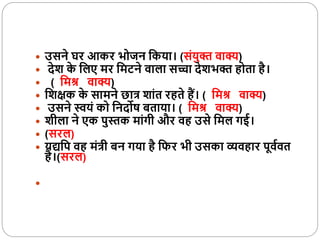 उसने घर आकर भोजन किया। (संयुक्त वाक्य)
देश के लिए मर मिटने वाला सच्चा देशभक्त होता है।
( मिश्र वाक्य)
शिक्षक के सामने छात्र शांत रहते हैं। ( मिश्र वाक्य)
उसने स्वयं को निर्दोष बताया। ( मिश्र वाक्य)
शीला ने एक पुस्तक मांगी और वह उसे मिल गई।
(सरल)
यद्यपि वह मंत्री बन गया है फिर भी उसका व्यवहार पूर्ववत
है।(सरल)